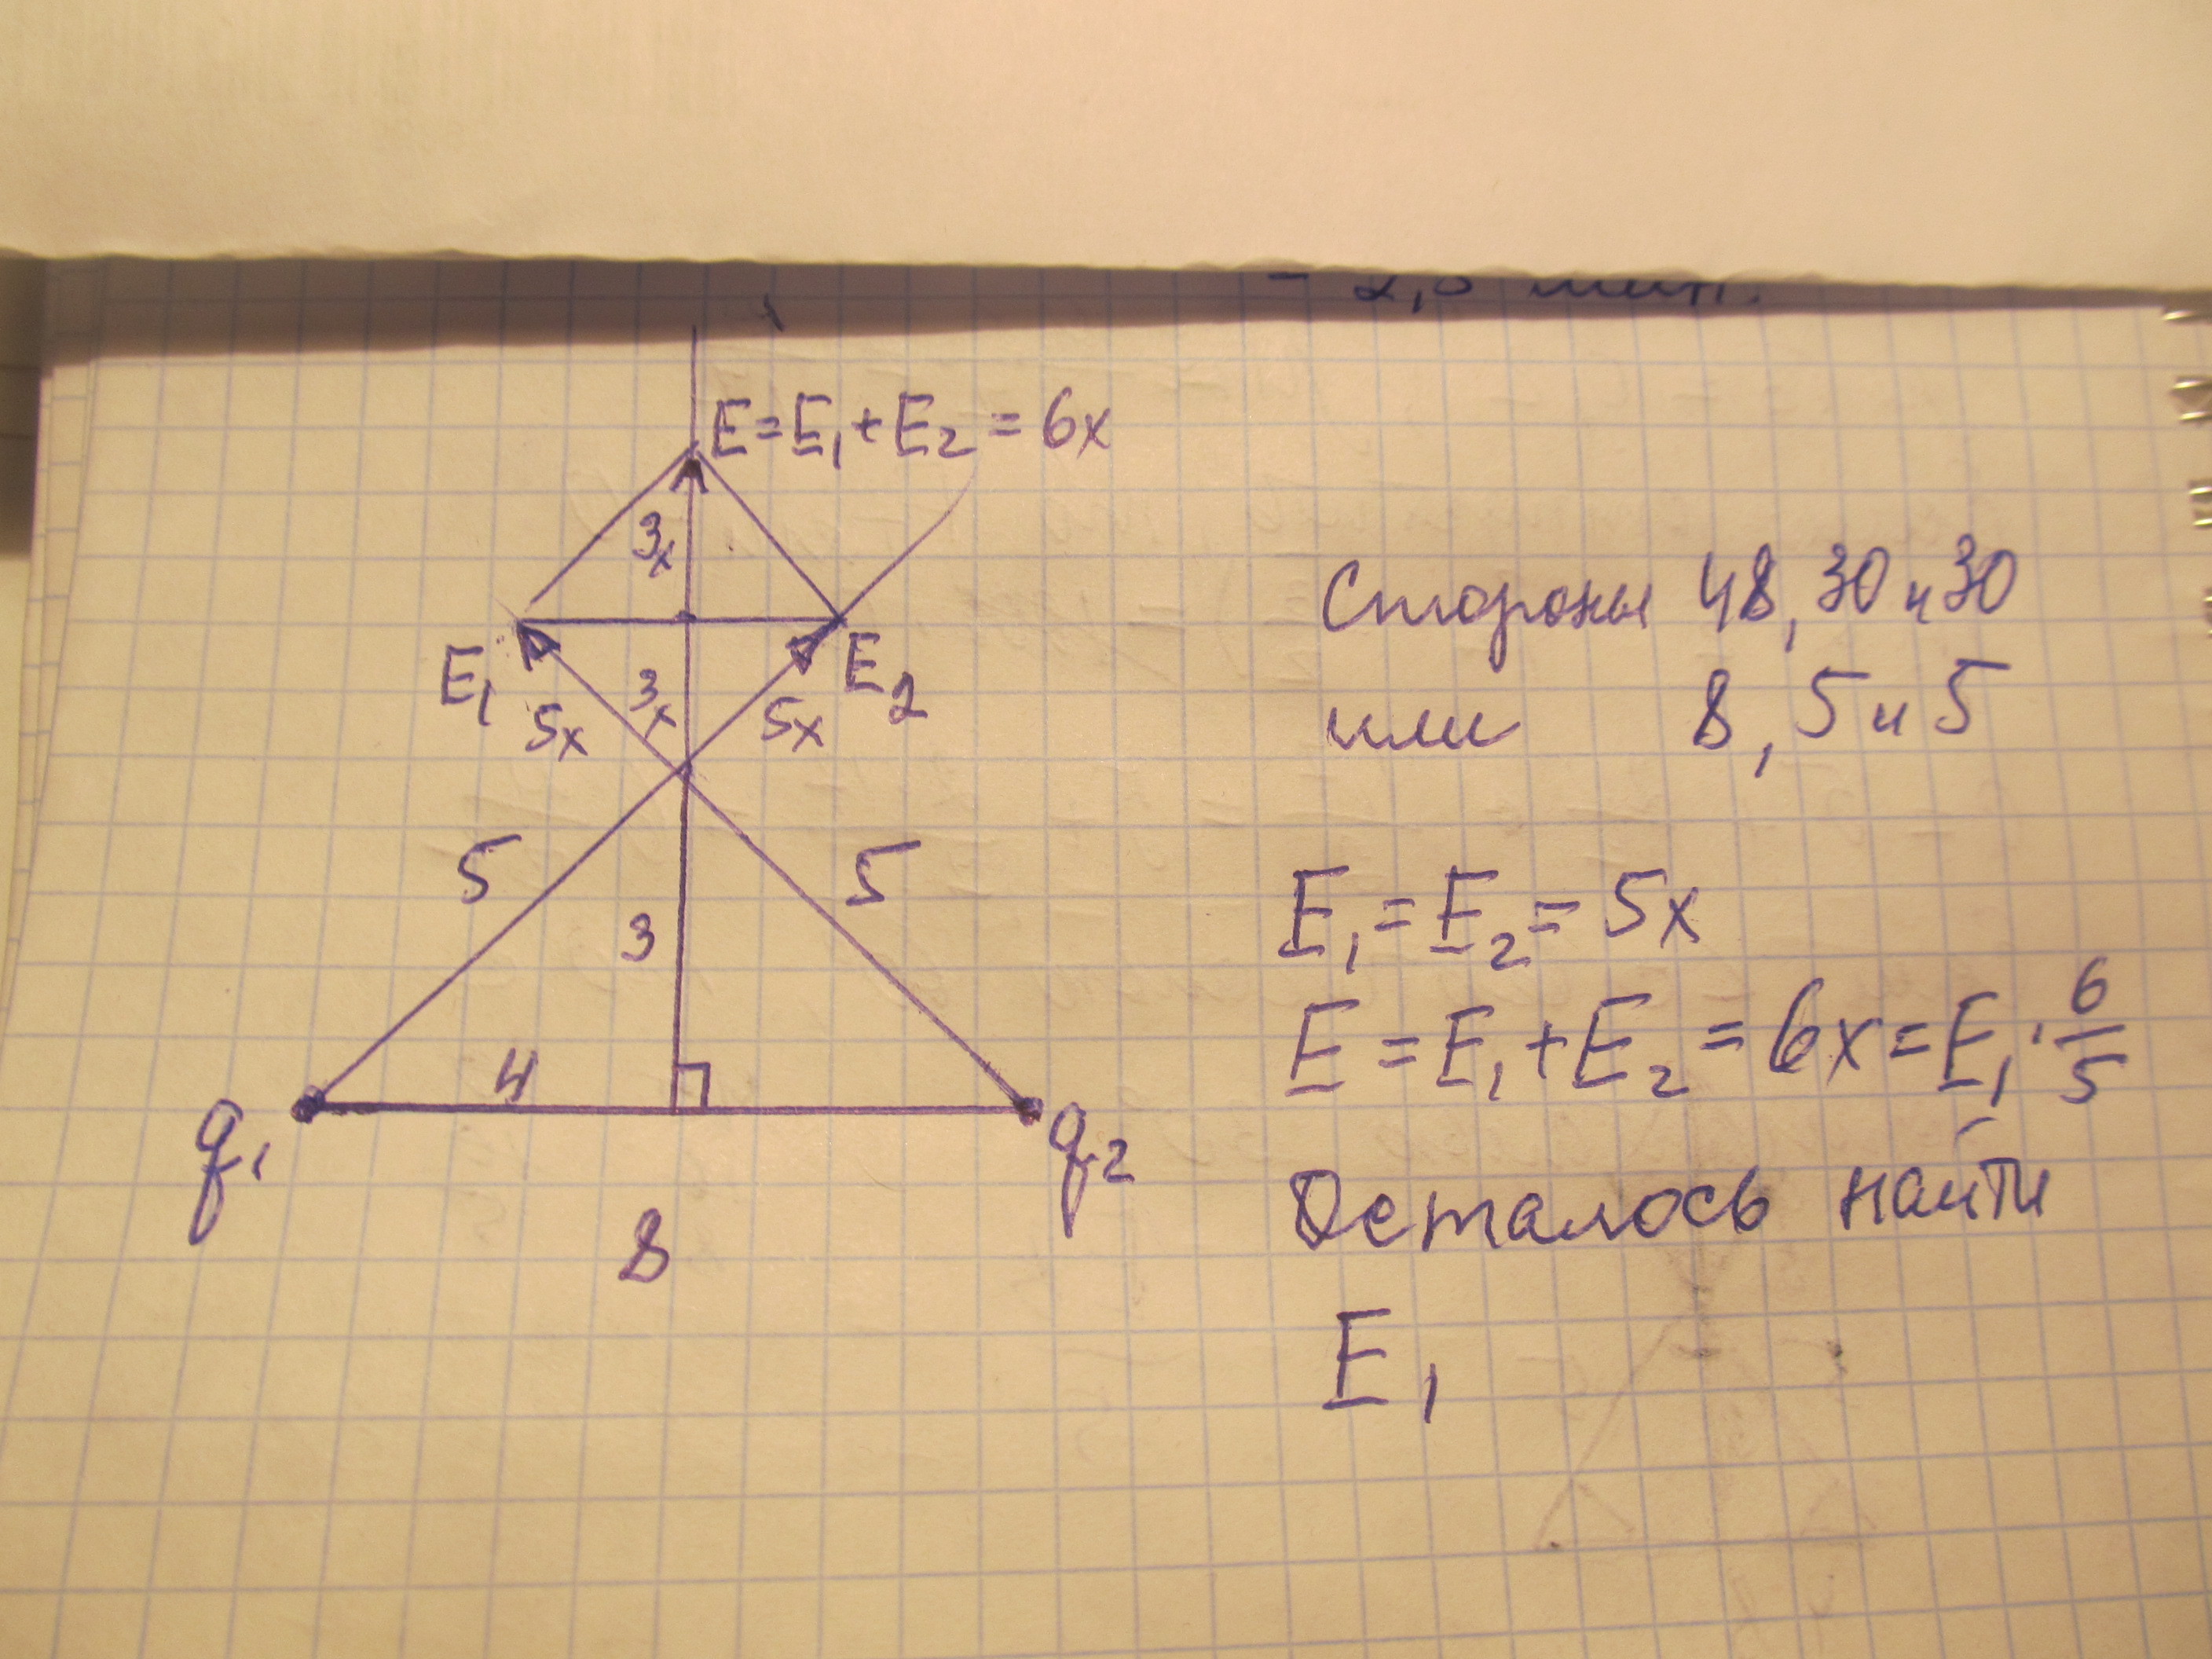 E=E₁+E₂=6x
3x
E₁
5x
3x
5x
E₂
5
3
5
4
q₁
q₂
8
Стороны 48, 30 и 30
или 8, 5 и 5
E₁=E₂=5x
E=E₁+E₂=6x=E₁·6/5
Осталось найти
E₁